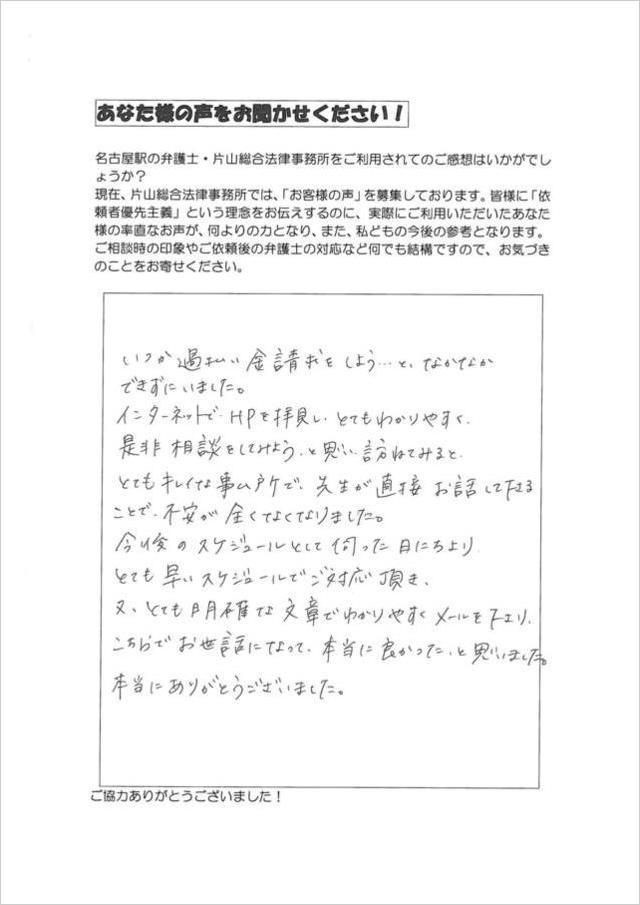 あなた様の声をお聞かせください!
名古屋駅の弁護士・片山総合法律事務所をご利用されてのご感想はいかがでし
ょうか?
現在、片山総合法律事務所では、「お客様の声」を募集しております。皆様に「依
頼者優先主義」という理念をお伝えするのに、実際にご利用いただいたあなた
様の率直なお声が、何よりの力となり、また、私どもの今後の参考となります。
ご相談時の印象やご依頼後の弁護士の対応など何でも結構ですので、お気づき
のことをお寄せください。
いつか過払い金請求をしよう…と、なかなか
できずにいました。
インターネットで、HPを拝見し、とてもわかりやすく、
是非相談をしてみよう、と思い訪ねてみると、
とてもキレイな事ム所で、先生が直接お話して下さる
ことで、不安が全くなくなりました。
今後のスケジュールとして伺った日にちより、
とても早いスケジュールでご対応頂き、
又、とても明確な文章でわかりやすくメールを下さり、
こちらでお世話になって、本当に良かった、と思いました。
本当にありがとうございました。
ご協力ありがとうございました!